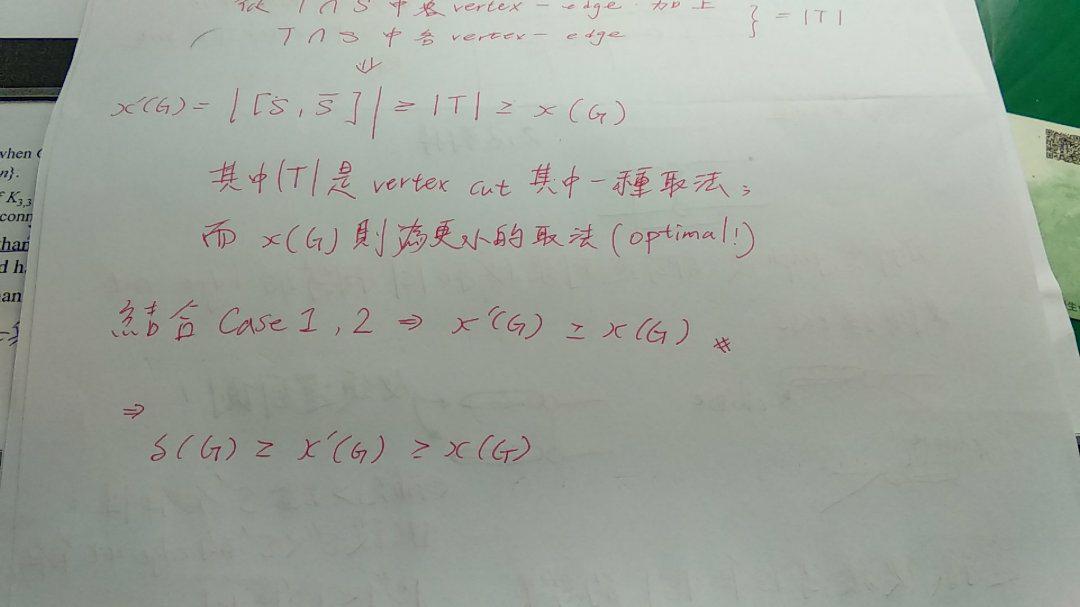 T ∩ S 中 vertex - edge 加上
T ∩ S 中各 vertex - edge } = |T|
⇓
x'(G) = |[S, S̅]| ≥ |T| ≥ x(G)
其中|T|是 vertex cut 其中一種取法,
而 x(G) 則為更小的取法 (optimal!)
結合 Case 1, 2 ⇒ x'(G) ≥ x(G) ※
⇒
δ(G) ≥ x'(G) ≥ x(G)
when
n}.
K3,3
conn
than
d h
an